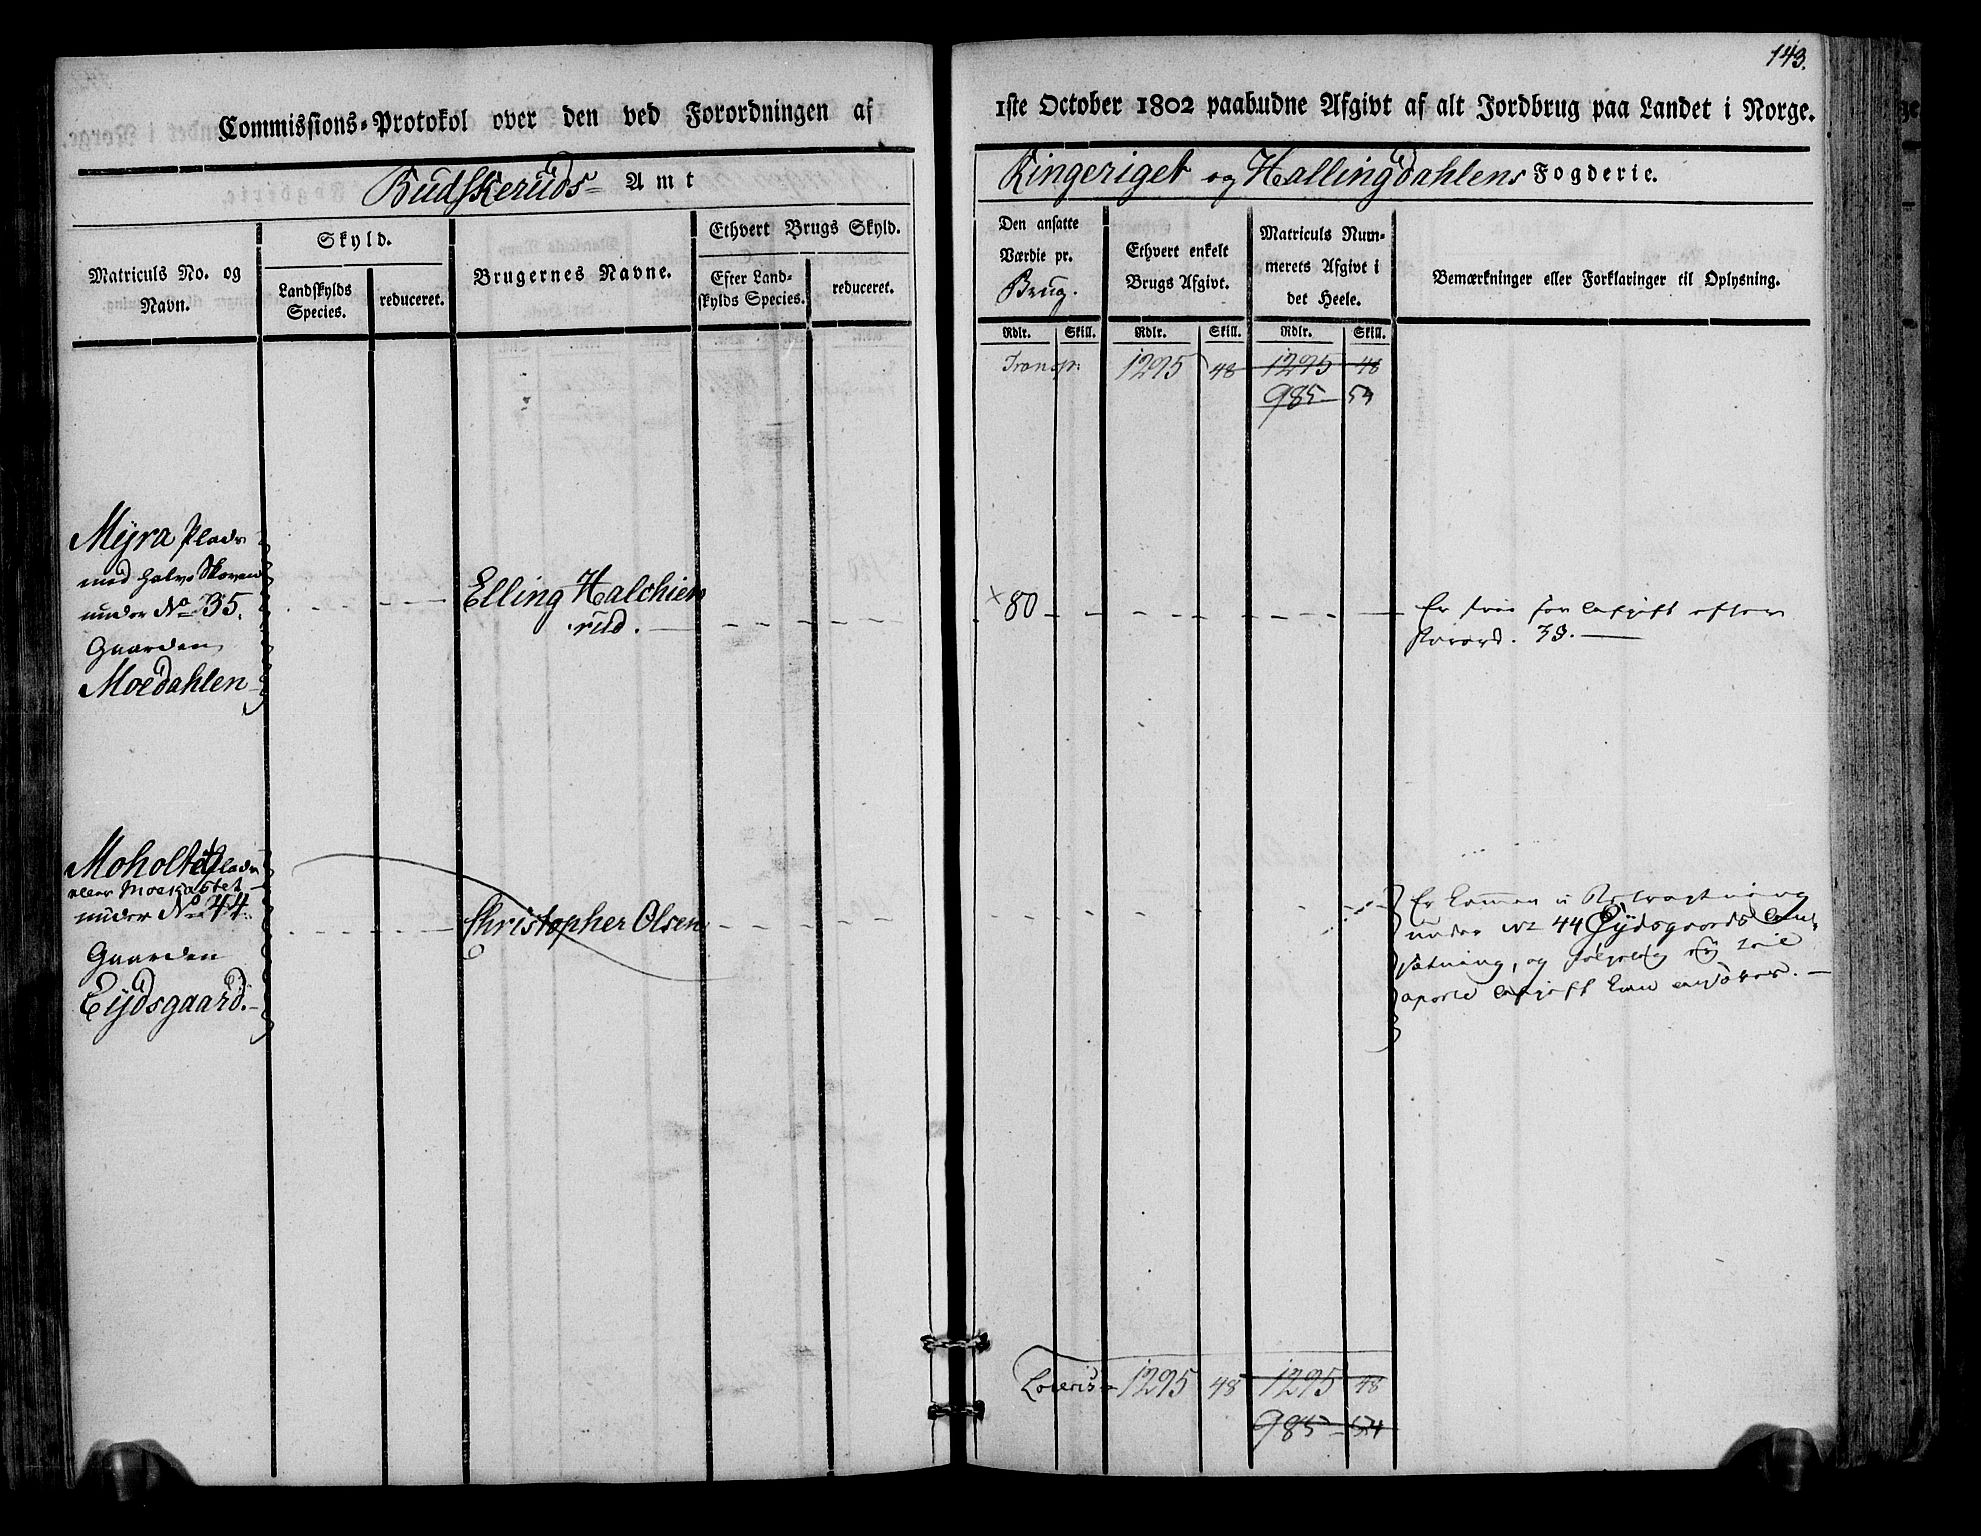 143.
Commissions-Protokol over den ved Forordningen af 1ste October 1802 paabudne Afgivt af alt Jordbrug paa Landet i Norge.
Budskeruds Amt
Ringeriget og Hallingdahlens Fogderie.
Matriculs No. og Navn.
Skyld.
Landskylds Species.
reduceret.
Brugernes Navne.
Ethvert Brugs Skyld.
Efter Landskylds Species.
reduceret.
Den ansatte Værdie pr. Brug.
Ethvert enkelt Brugs Afgivt.
Matriculs Nummerets Afgivt i det Heele.
Bemærkninger eller Forklaringer til Oplysning.
Rdlr. Skill. Rdlr. Skill. Rdlr. Skill.
Transp: 1295 48 1295 48
985 54
Myra Plads
med halve Skoven
under No 35.
Gaarden
Moedahlen
Elling Halchien
rud.
80
Er frie for Afgift efter
Forord. 3
Moholtet Plads
eller Moekastet
under No 44
Gaarden
Eijdsgaard.
Christopher Olsen
Er kommen i Betragtning
under No 44 Eijdsgaards An-
sætning, og følgelig
aparte Afgift kun ansættes.
Lateris 1295 48 1295 48
985 54